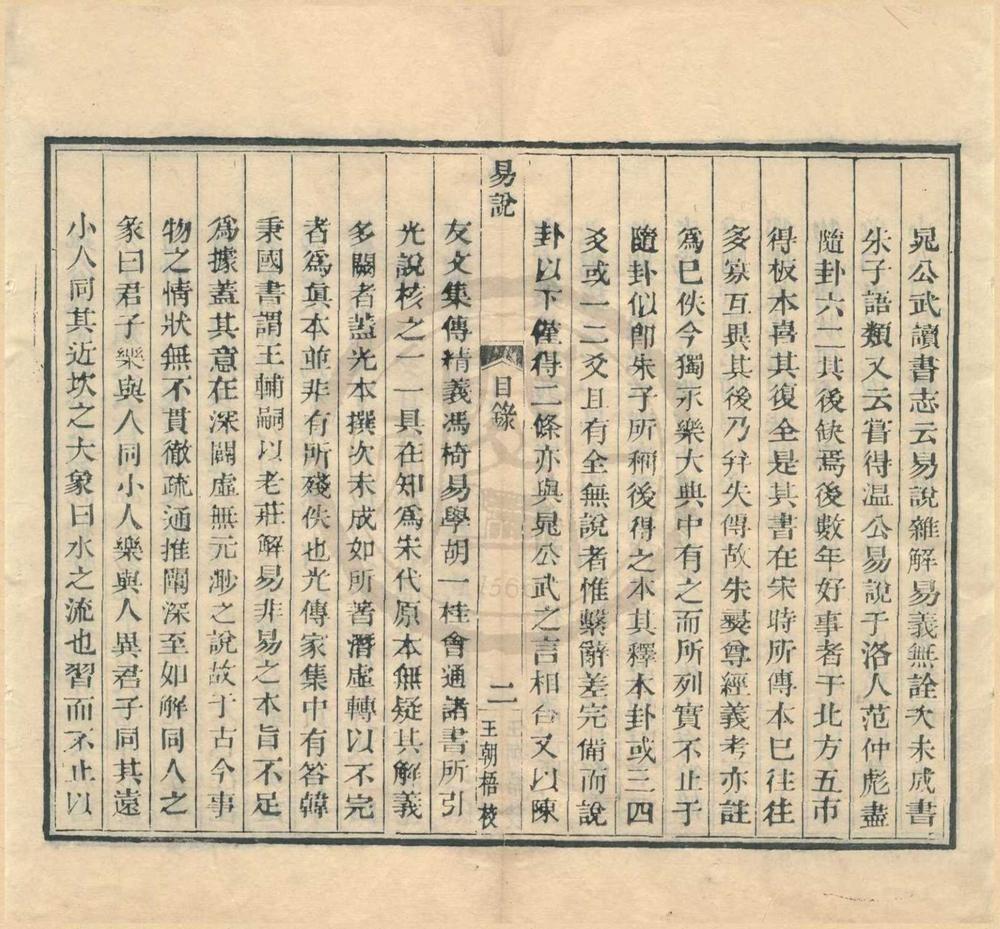 晁公武讀書志云易說雜解易義無詮次未成書
朱子語類又云嘗得温公易說于洛人范仲彪盡
隨卦六二其後缺焉後數年好事者于北方互市
得板本喜其復全是其書在宋時所傳本已往往
多寡互異其後乃并失傳故朱彝尊經義考亦註
爲已佚今獨永樂大典中有之而所列實不止于
隨卦似卽朱子所稱後得之本其釋本卦或三四
爻或一二爻且有全無說者惟繫辭差完備而說
卦以下僅得二條亦與晁公武之言相合又以陳
易說
目錄
二
王朝梧校
友文集傳精義馮椅易學胡一桂會通諸書所引
光說核之一一具在知爲宋代原本無疑其解義
多闕者盖光本撰次未成如所著潛虛轉以不完
者爲眞本並非有所殘佚也光傳家集中有答韓
秉國書謂王輔嗣以老莊解易非易之本旨不足
爲據蓋其意在深闢虛無元渺之說故于古今事
物之情狀無不貫徹疏通推闡深至如解同人之
彖曰君子樂與人同小人樂與人異君子同其遠
小人同其近坎之大象曰水之流也習而不止以